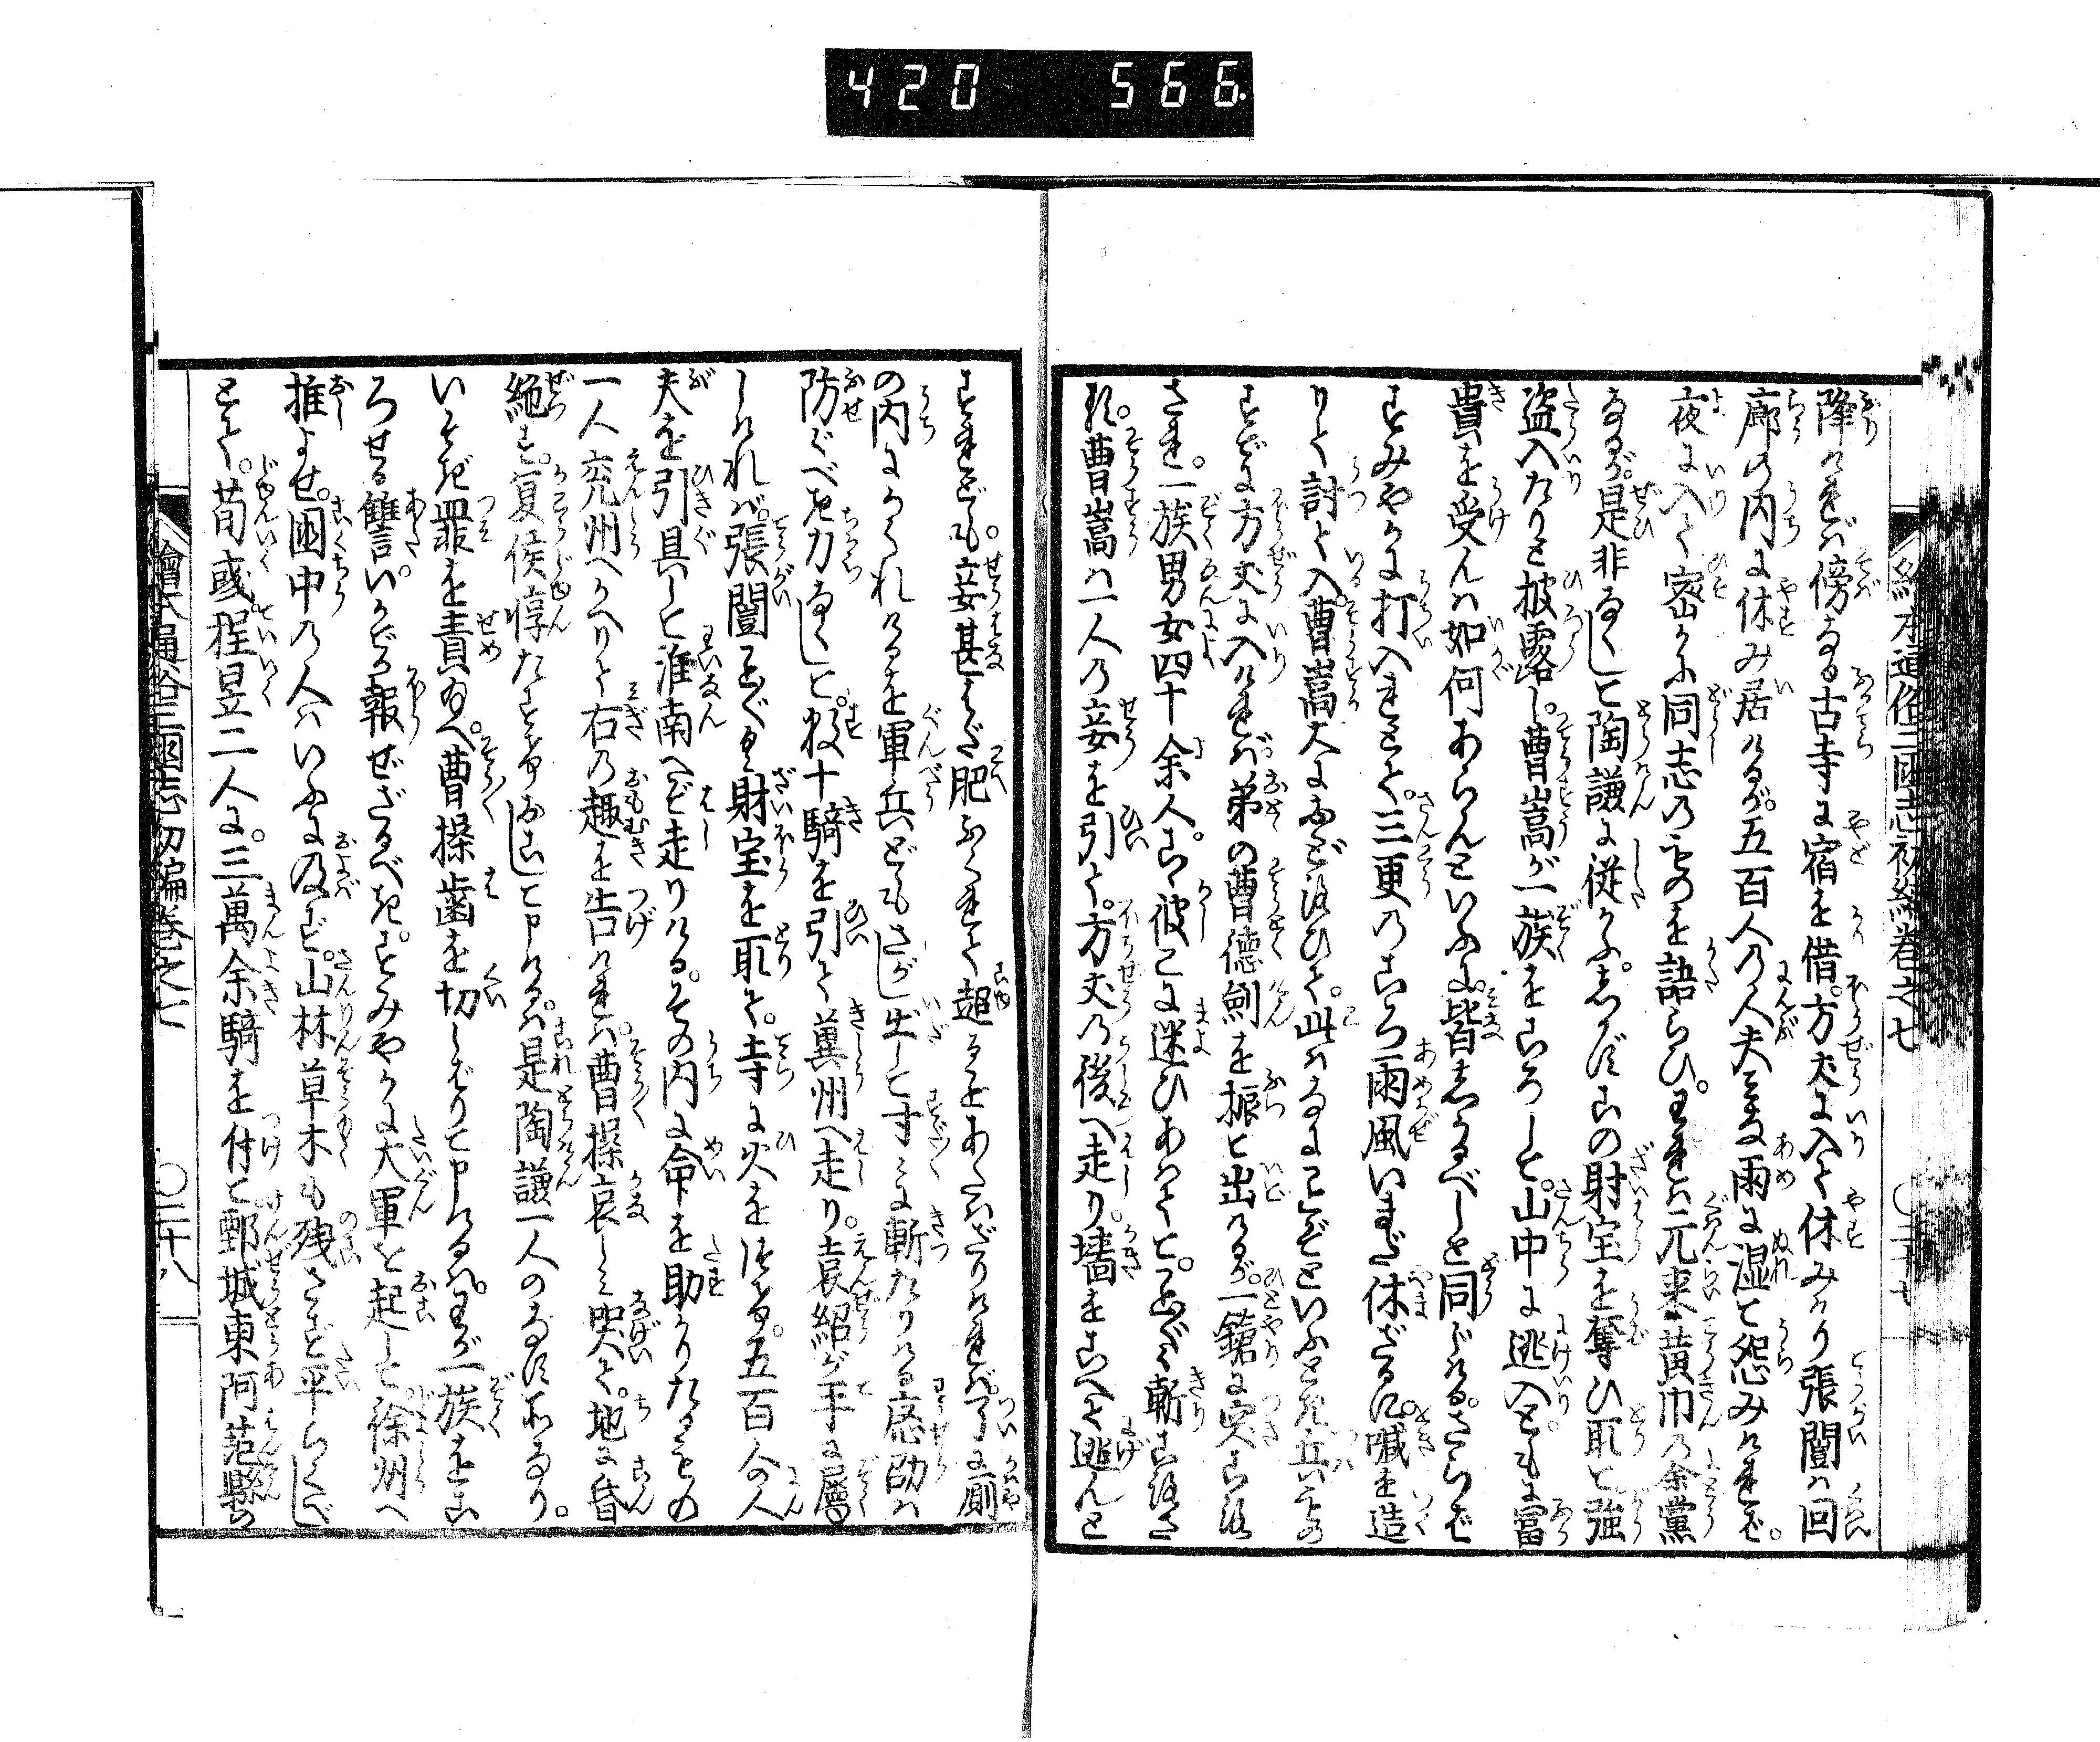 420 566.
絵本通俗三国志初編巻之七 〇二十七
降ければ傍なる古寺に宿を借。方丈に入て休みけり張闓は回
廊の内に休み居けるが。五百人の人夫みな雨に湿て怨みければ。
夜に入て密かに同志のものを語らひ。われは元来黄巾の余黨
なるが。是非なくして陶謙に従かふ。しかじこの財宝を奪ひ取て強
盗入たりと披露し。曹嵩が一族をころして。山中に逃入ともに富
貴を受んは如何あらんといふに。皆しかるべしと同じける。さらば
すみやかに打入れとて。三更のころ雨風いまだ休ざるに。喊を造
りて討て入。曹嵩大におどろひて。此はなにごとぞといふとき兵はその
すでに方丈に入ければ弟の曹徳剣を振て出けるが。一鎗に突ころ
され。一族男女四十余人。こゝ彼こに迷ひあはてゝ。ことごとく斬ころさ
れ。曹嵩は一人の妾を引て。方丈の後へ走り。墻をこへて逃んと
すれども。妾甚はだ肥ふくれて超ることあたはざりければ。了に厠
の内にかくれけるを軍兵どもさがし出して寸々に斬たりける應劭は
防ぐべき力なくして。数十騎を引て冀州へ走り。袁紹が手に属
しければ。張闓ことごとく財宝を取て。寺に火をはなち。五百人の人
夫を引具して淮南へぞ走りける。その内に命を助かりたるもの
一人兗州へかへりて右の趣を告ければ。曹操哀しみ哭て。地に昏
絶す。夏侯惇たすけおこして申けるは。是陶謙一人のなす所なり。
いそぎ罪を責給へ。曹操歯を切しばりて申けるは。わが一族をこ
ろせる讐い。かでか報ぜざるべき。すみやかに大軍を起して。徐州へ
推よせ。國中の人はいふに及ばず。山林草木も残さず平らぐべし
とて。荀彧程昱二人に。三萬余騎を付て鄄城東阿范縣の
繪本通俗三國志初編巻之七 〇二十八